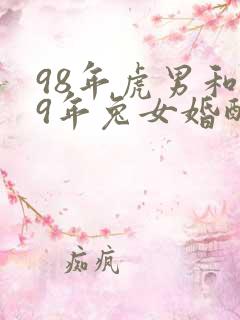 98年虎男和
9年兔女婚配
痴疯